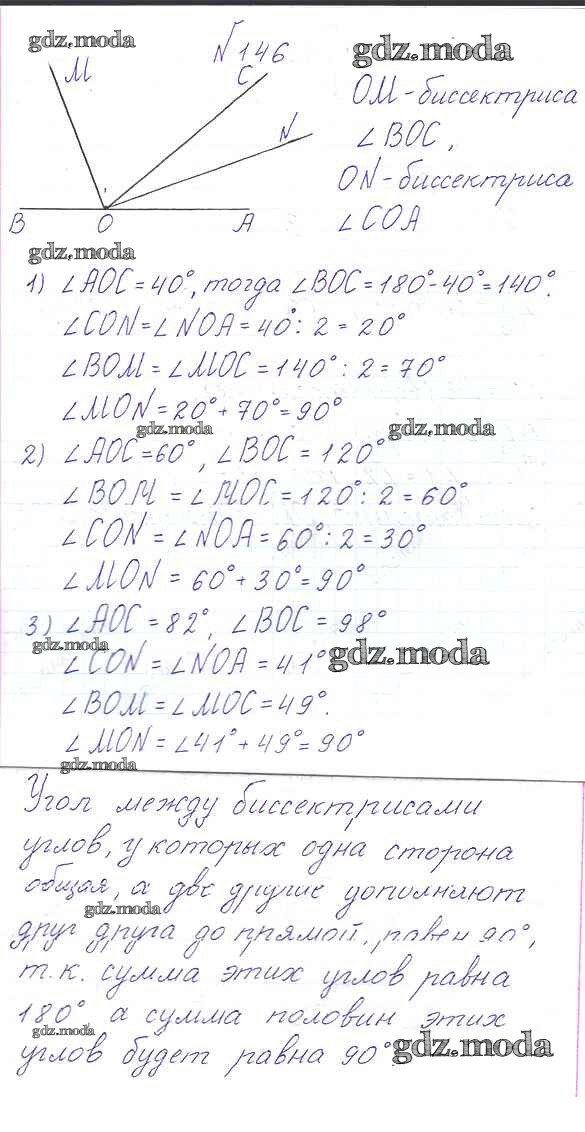 gdz.moda
№146
gdz.moda
M
C
N
B
O
A
OM-биссектриса
∠BOC,
ON-биссектриса
∠COA
gdz.moda
1) ∠AOC=40°, тогда ∠BOC=180°-40°=140°.
∠CON=∠NOA=40°:2=20°
∠BOM=∠MOC=140°:2=70°
∠MON=20°+70°=90°
gdz.moda
gdz.moda
2) ∠AOC=60°, ∠BOC=120°
∠BOM=∠MOC=120°:2=60°
∠CON=∠NOA=60°:2=30°
∠MON=60°+30°=90°
3) ∠AOC=82°, ∠BOC=98°
gdz.moda
∠CON=∠NOA=41°
gdz.moda
∠BOM=∠MOC=49°.
∠MON=∠41°+49°=90°
gdz.moda
Угол между биссектрисами
углов, у которых одна сторона
общая, а две другие дополняют
gdz.moda
друг друга до прямой, равен 90°,
т.к. сумма этих углов равна
180° а сумма половин этих
gdz.moda
углов будет равна 90°
gdz.moda